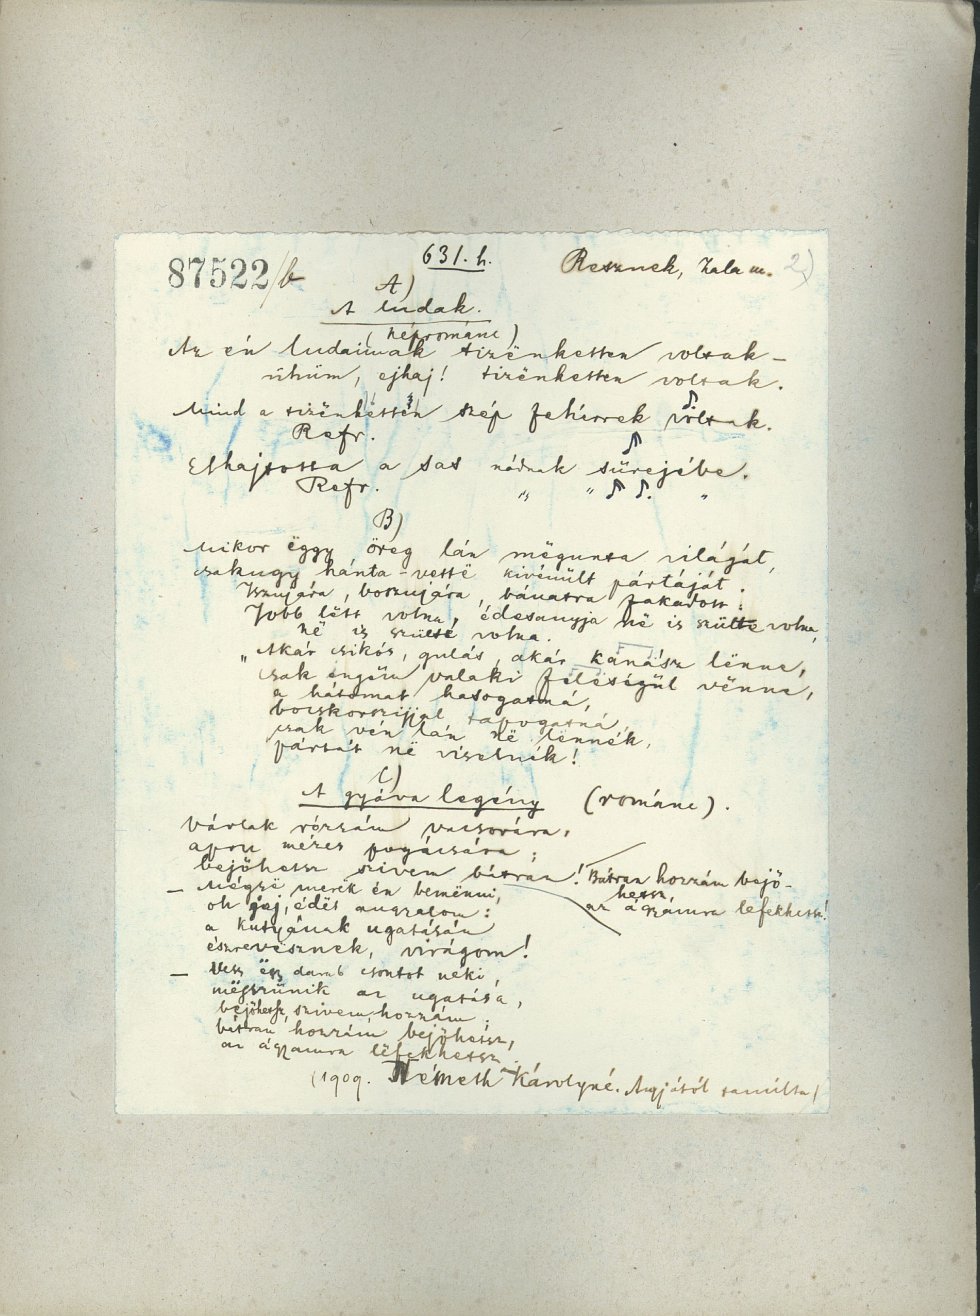 87522/b
631. h.
Resznek, Zala m. 2)
A)
A ludak.
(néprománc)
Az én ludaimak tizënketten voltak –
ühüm, ejhaj! tizënketten voltak.
Mind a tizënketten szép fehírrek voltak.
Refr.
Elhajtotta a sas nádnak sürejébe.
Refr. " " "
B)
Mikor ëggy öreg lán mëgunta világát,
csakugy hánta-vettë kivénült pártáját.
Isznujára, bosznujára, bánatra fakadott:
Jobb lëtt volna, édesanyja në is szülte volna,
në is szülte volna.
„Akár csikós, gulás, akár kanász lënne,
csak engëm valaki feleségül vënne,
a hátomat hasogatná,
bocskorszijjal tapogatná,
csak vén lán në lënnék,
pártát në viselnék!
C)
A gyáva legény (románc).
Várlak rózsám vacsorára,
apou mézes pogácsára;
bejöhetsz szivem bátran! Bátran hozzám bejö-
hetsz,
az ágyamra lefekhetsz!
– Mégsë merek én bemënni,
oh jaj, édës angyalom:
a kutyának ugatásán
észrevësznek, virágom!
– Vesz ëgy darab csontot neki,
mëgszünik az ugatása,
bejöhetsz, szivem hozzám.
bátran hozzám bejöhetsz,
az ágyamra lëfekhetsz.
(1909. Németh Károlyné. Anyjától tanúlta)